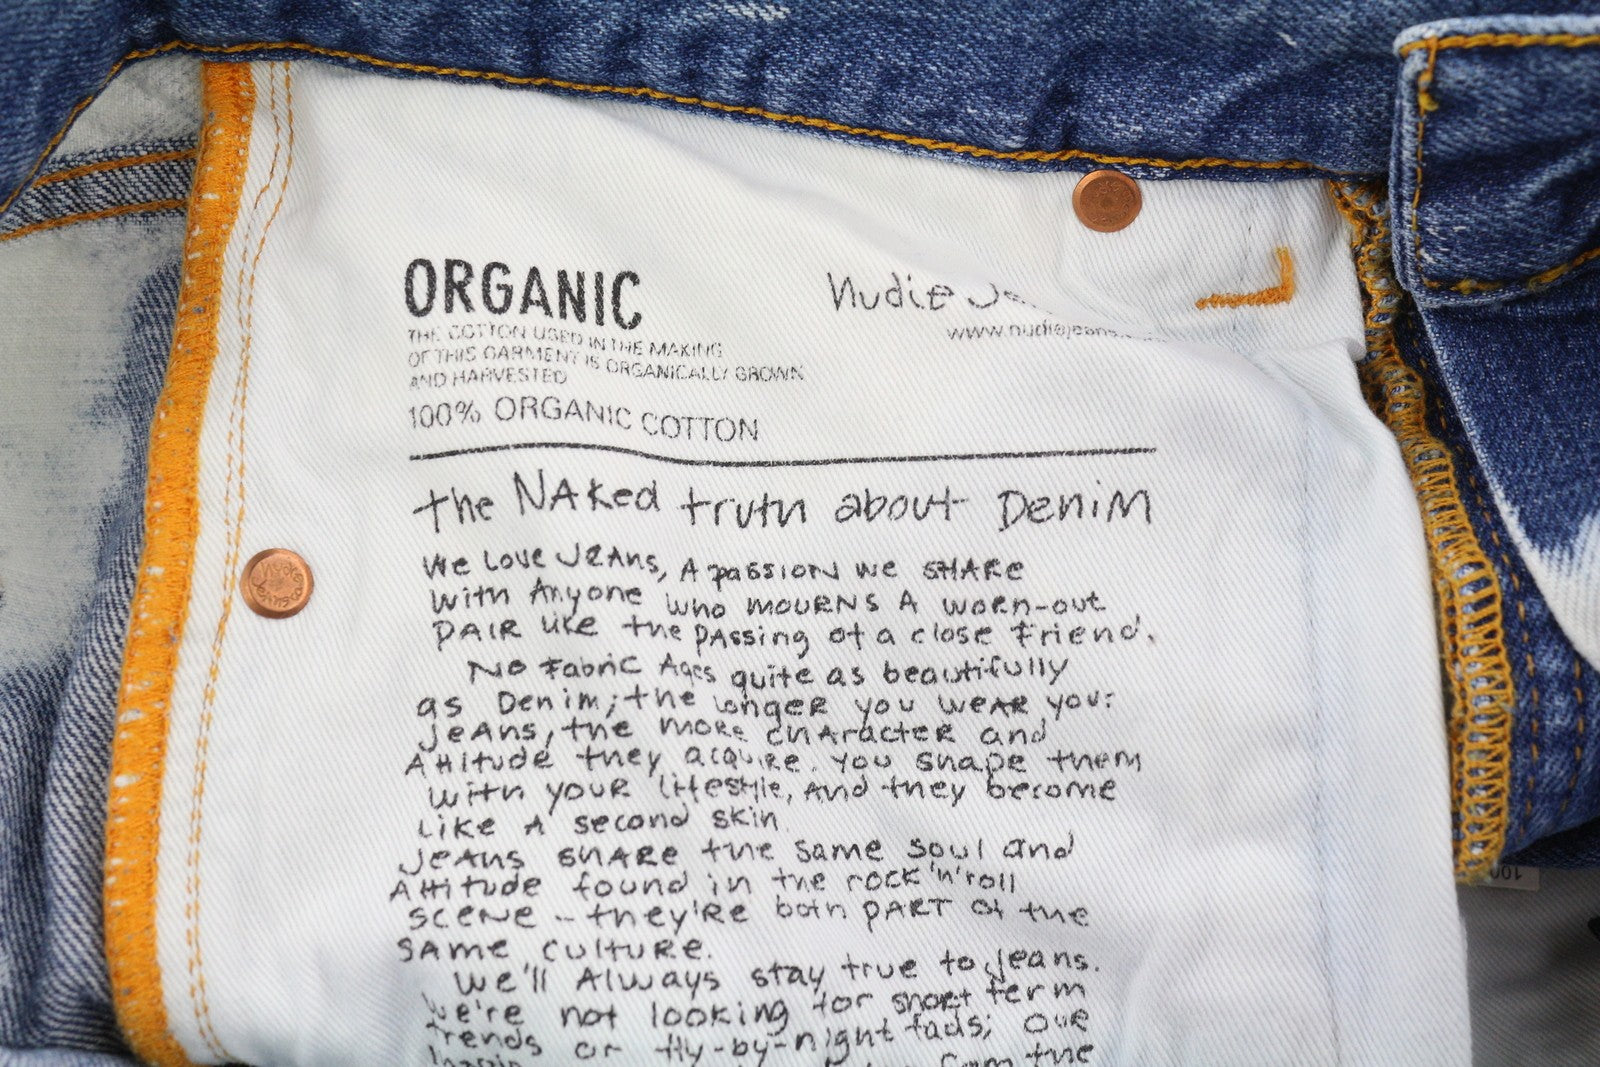 ORGANIC
THE COTTON USED IN THE MAKING
OF THIS GARMENT IS ORGANICALLY GROWN
AND HARVESTED
100% ORGANIC COTTON
Nudie Je
www.nudiejeans
the NAKed truth about Denim
We Love JEANS, A passion we SHARe
with Anyone who mOURNS A worn-out
PAIR like the passing of a close friend.
No Fabric Ages quite as beautifully
as Denim; the longer you weAR your
jeans, the more character and
Attitude they acquire. you shape them
with your lifestyle, and they become
like A second skin.
JEANS SHARE the same soul and
Attitude found in the rock'n'roll
scene - they're both PART of the
SAME CULTURE.
We'll Always stay true to jeans.
We're not looking for short term
trends or fly-by-night fads; our
from the
Nudie Jeans co
100